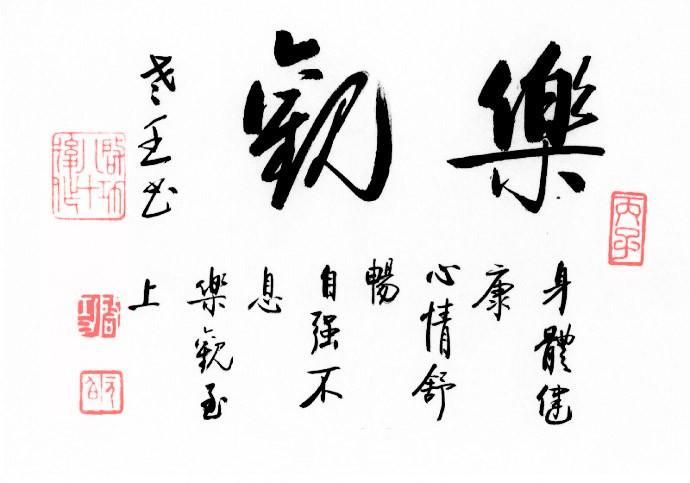 樂觀
丙子
身體健
康
心情舒
暢
自强不
息
樂觀至
上
书